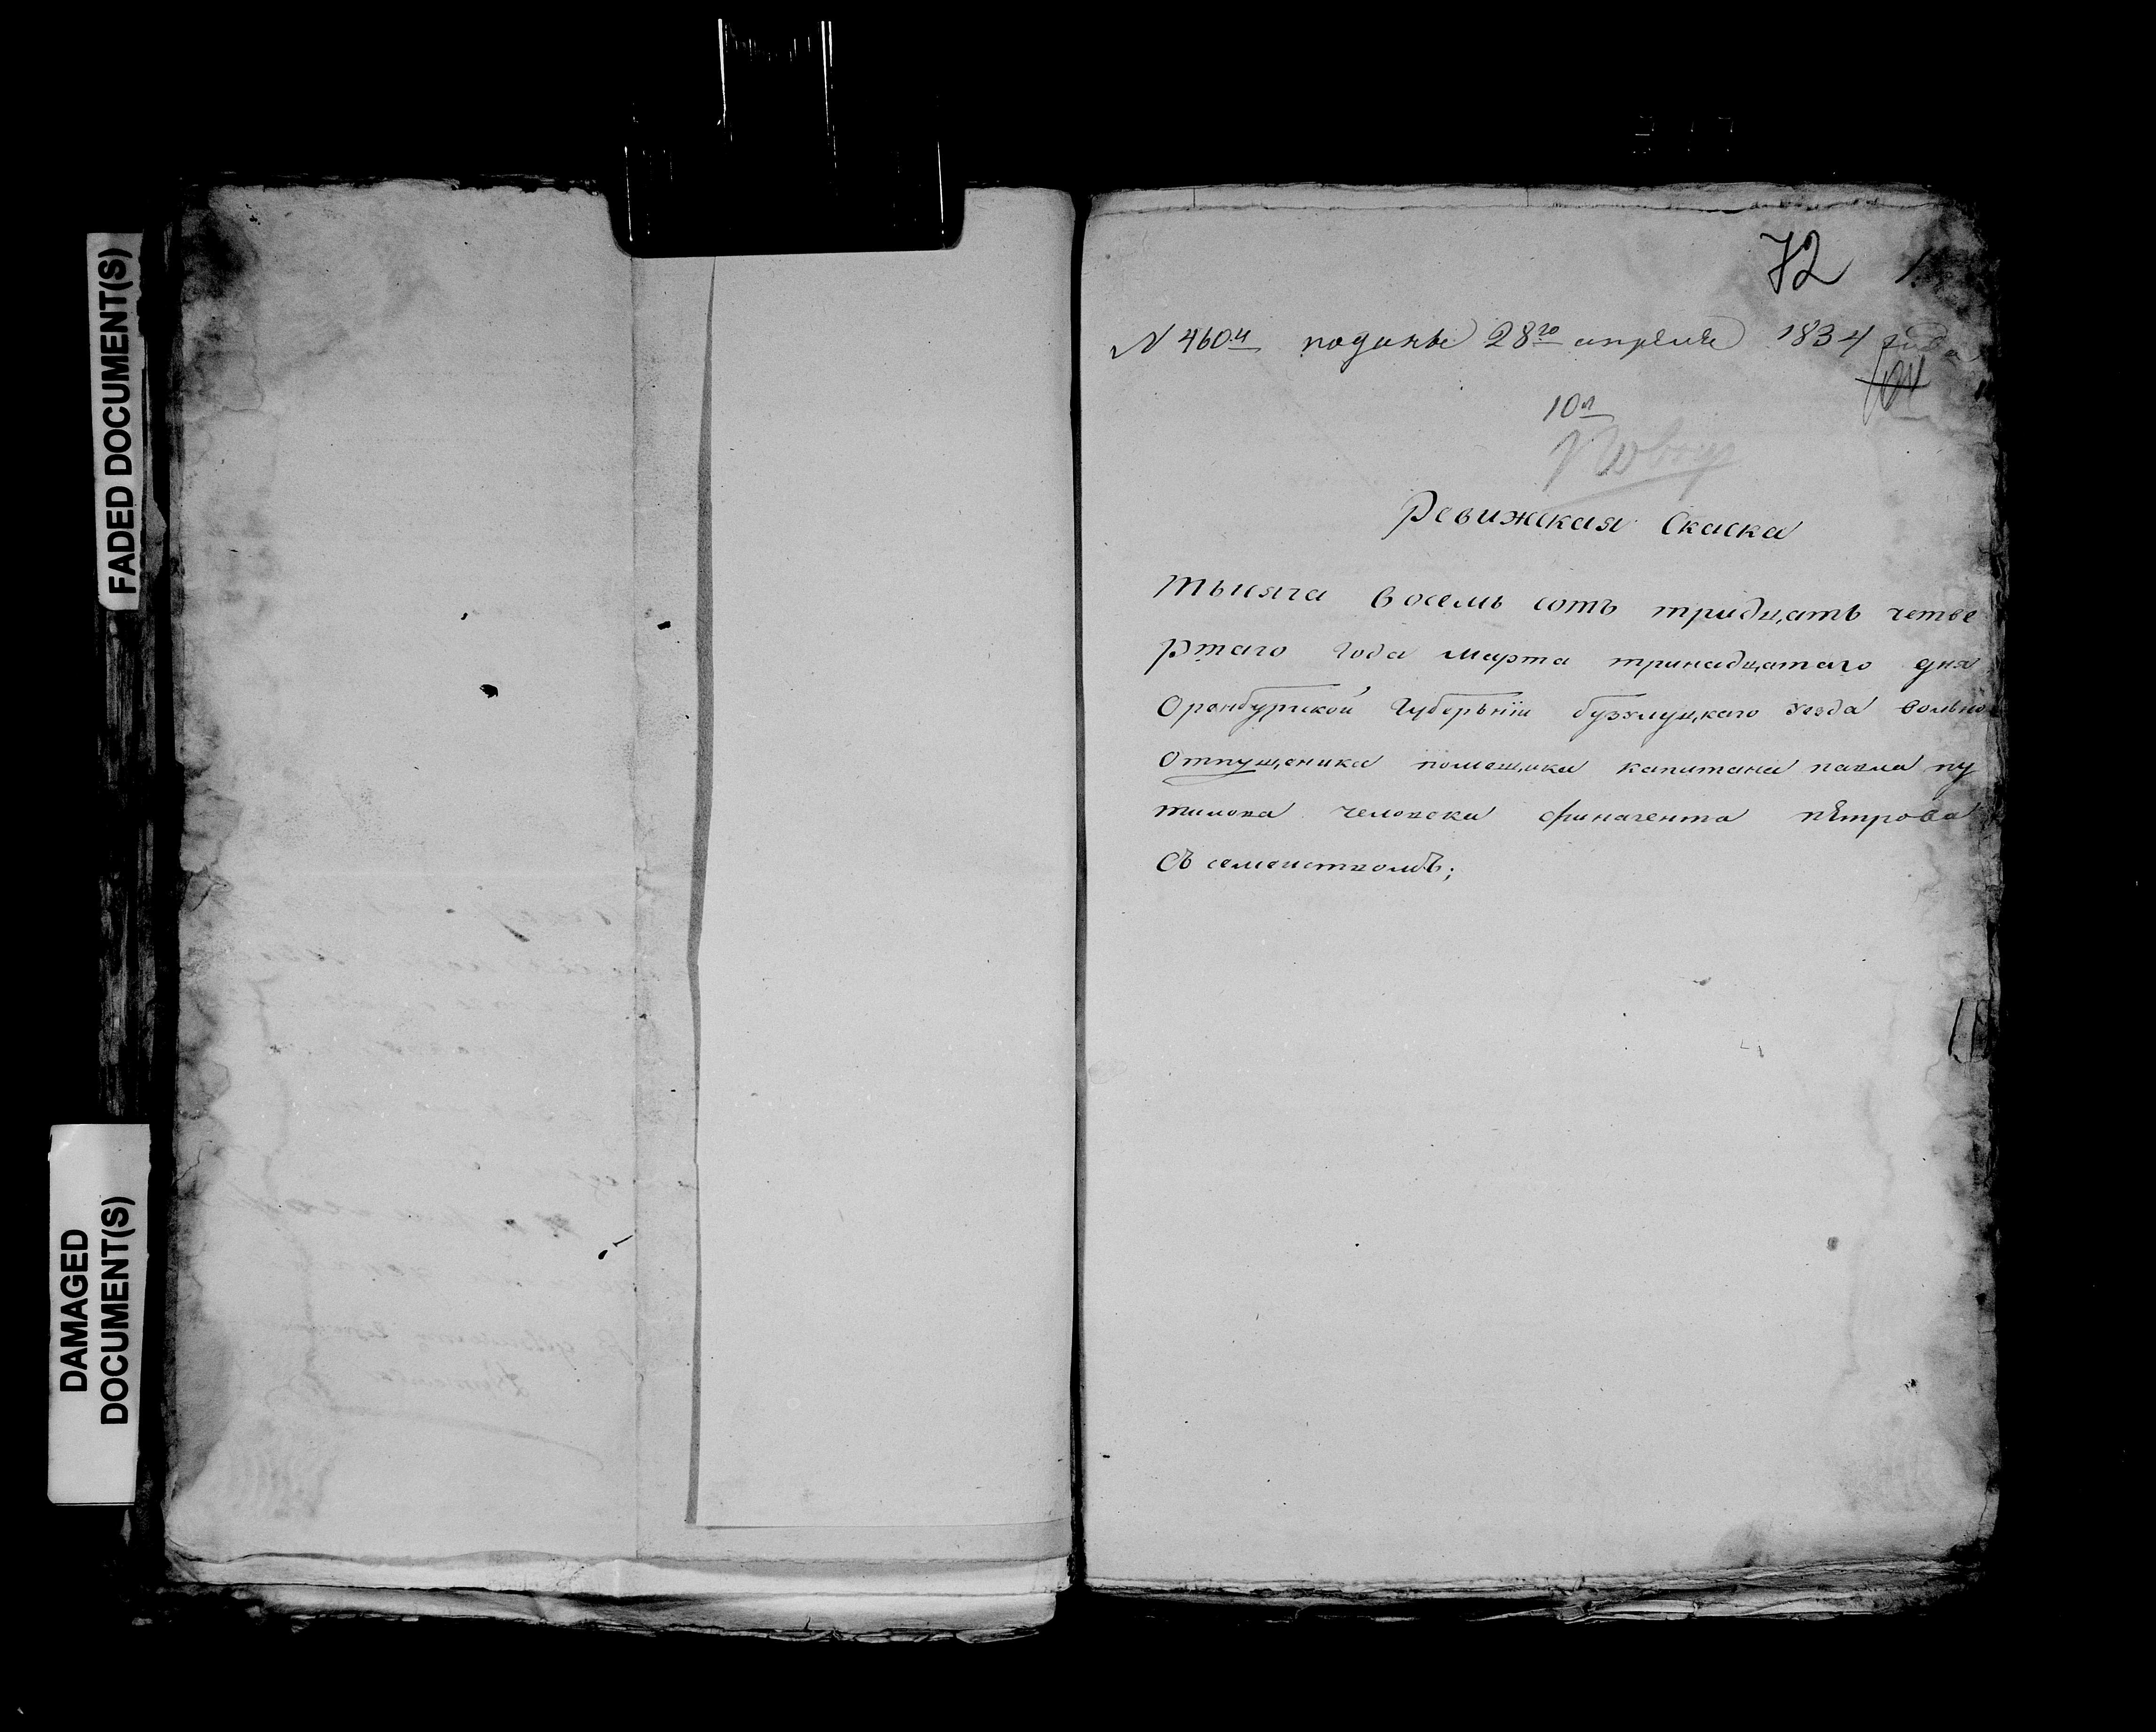 FADED DOCUMENT(S)
DAMAGED
DOCUMENT(S)
72
N 460й поданы 28го апреля 1834 года
10й
Ревижская Скаска
тысяча восемь сотъ тридцать четве
ртаго года марта тринадцатаго дня
Оренбургской Губерьнiи бузулуцкаго уезда вольно
отпущеника помещика капитана павла пу
тилова человека финагента пѣтрова
съ семеиствомъ;